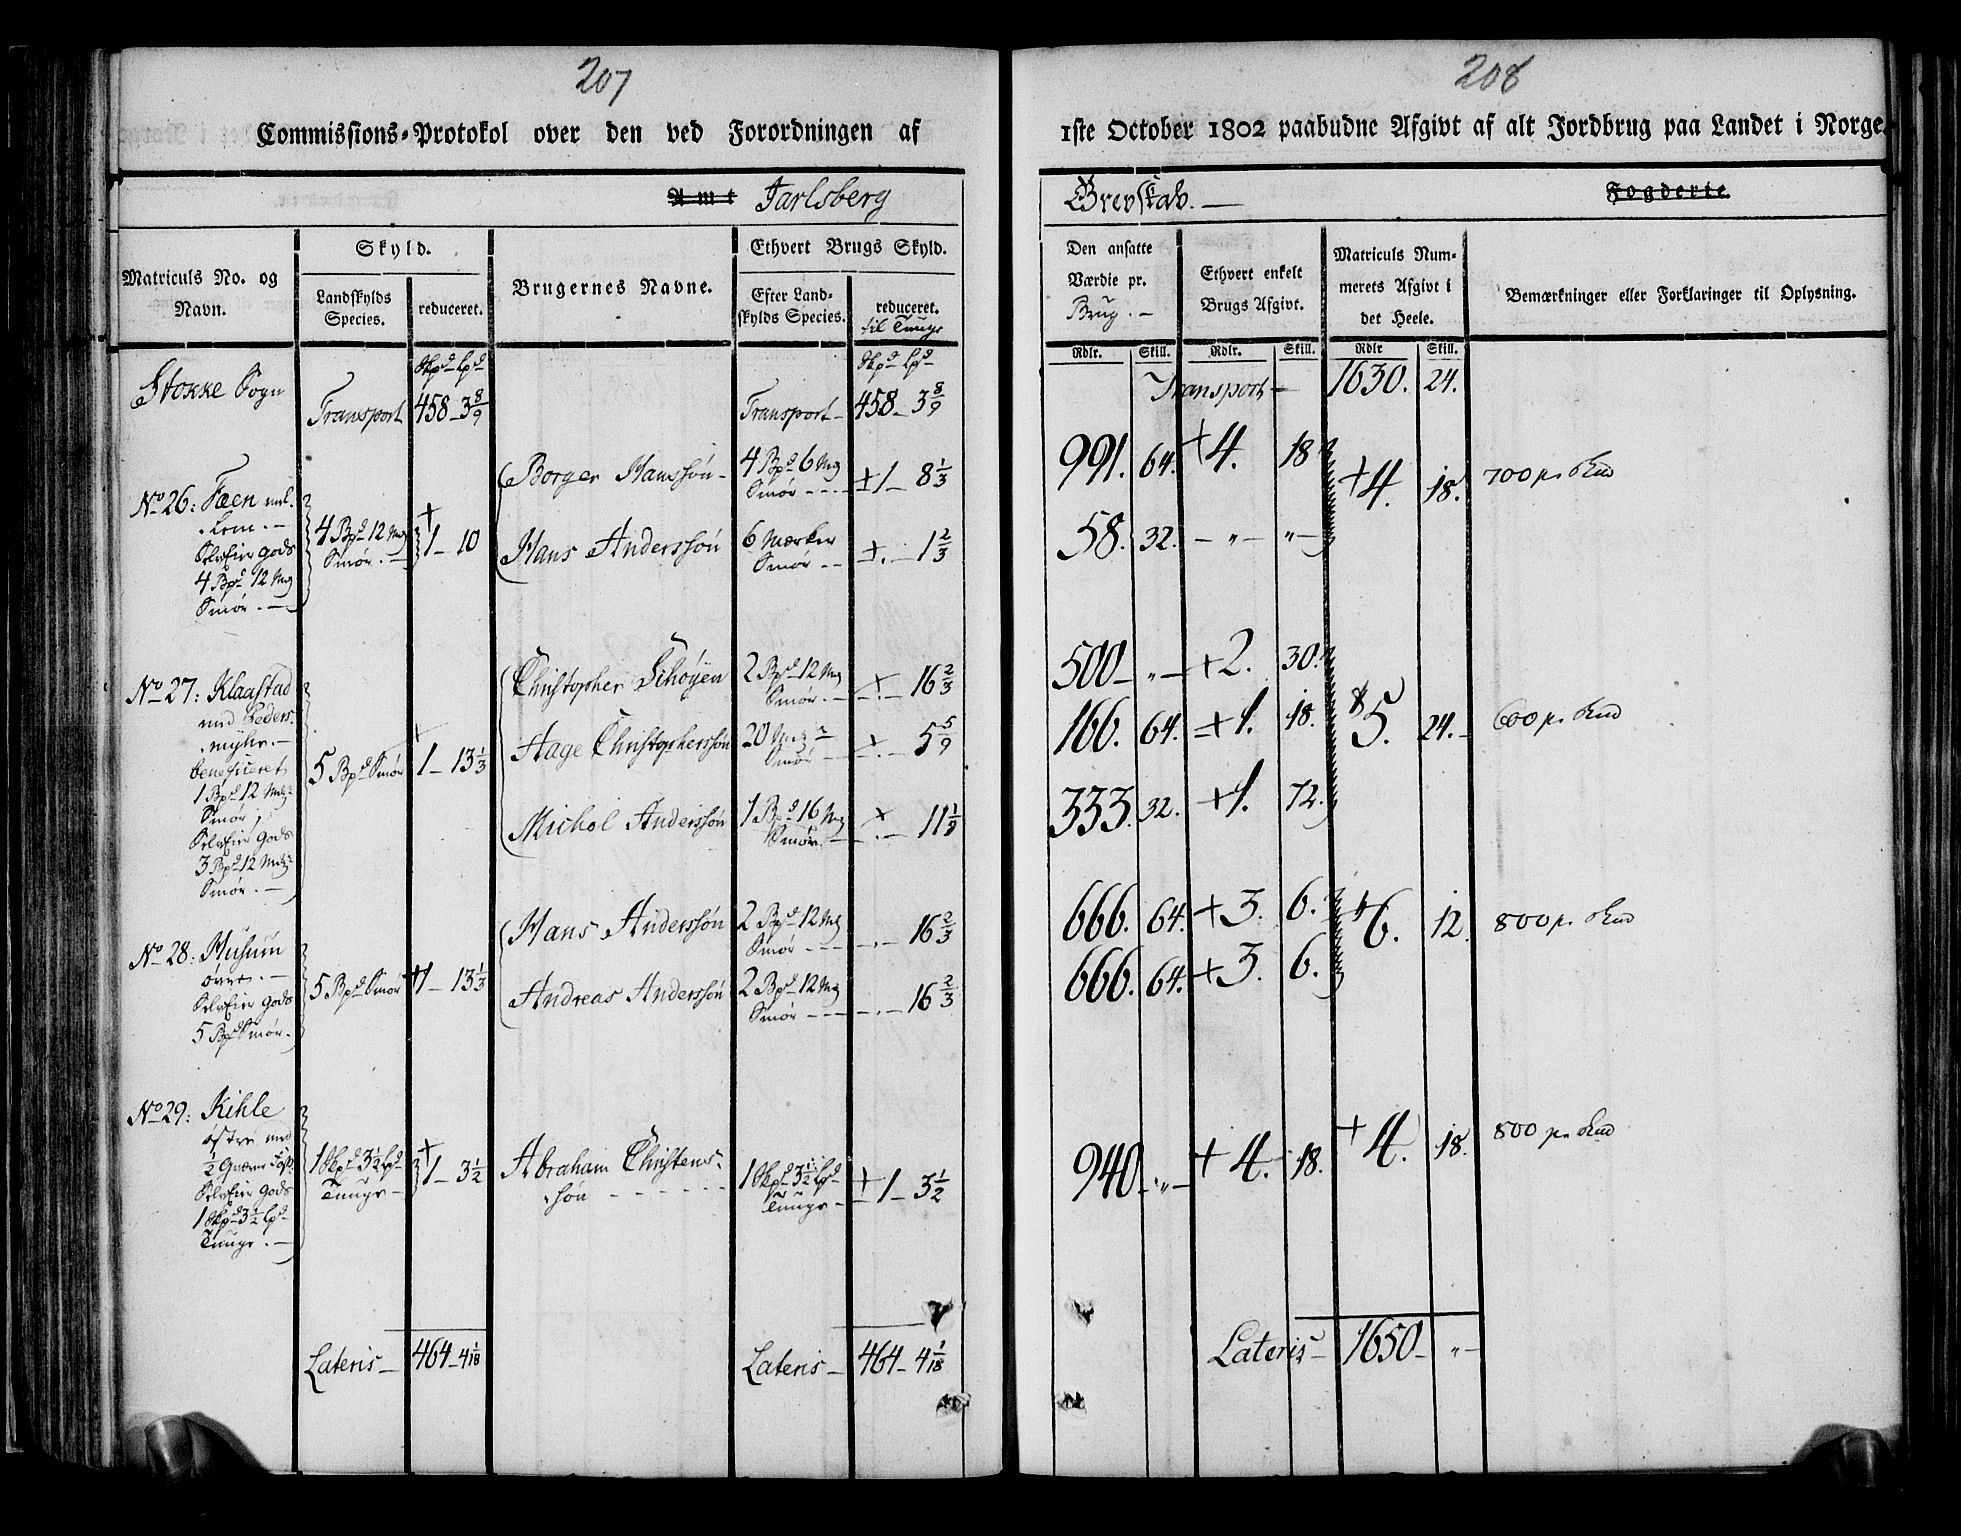 207
Commissions-Protokol over den ved Forordningen af
Amt Jarlsberg
Matriculs No. og Navn.
Skyld.
Landskylds Species.
reduceret.
Brugernes Navne.
Ethvert Brugs Skyld.
Efter Landskylds Species.
reduceret.
til Tunge
Stokke Sogn
Transport
Skpd Lpd
458 - 3 8/9
Transport -
Skpd Lpd
458 - 3 8/9
No 26: Fæen
Selv Eier Gods
4 Bpd 12 Mg
Smør. -
4 Bpd 12 Mg
Smør. -
+ 1 - 10
Borger Hanssøn -
4 Bpd 6 Mg
Smør - - -
+ 1 - 8 1/3
Hans Anderssøn
6 Mærker
Smør - -
+ . - 1 2/3
No 27: Klaastad
med Peders-
myhr. -
beneficeret
1 Bpd 12 Mg
Smør,
Selv Eier Gods
3 Bpd 12 Mg
Smør. -
5 Bpd Smør
1 - 13 1/3
Christopher Sihøyen
2 Bpd 12 Mg
Smør. -
- . - 16 2/3
Hage Christophersøn
20 Mg
Smør -
- . - 5 5/9
Michel Anderssøn
1 Bpd 16 Mg
Smør. -
- . - 11 1/9
No 28: Husum
øvre. -
Selv Eier Gods
5 Bpd Smør.
5 Bpd Smør
+1 - 13 1/3
Hans Anderssøn
2 Bpd 12 Mg
Smør - - -
- . - 16 2/3
Andreas Anderssøn
2 Bpd 12 Mg
Smør - - -
- . - 16 2/3
No 29: Kihle
østre med
Selv Eier Gods
1 Skpd 3 1/2 Lpd
Tunge. -
1 Skpd 3 1/2 Lpd
Tunge -
+ 1 - 3 1/2
Abraham Christens-
søn - - - - - -
1 Skpd 3 1/2 Lpd
Tunge -
+ 1 - 3 1/2
Lateris -
464 - 4 1/18
Lateris -
464 - 4 1/18
208
1ste October 1802 paabudne Afgivt af alt Jordbrug paa Landet i Norge.
Grevskab. -
Fogderie.
Den ansatte Værdie pr.
Brug. -
Ethvert enkelt Brugs Afgivt.
Matriculs Nummerets Afgivt i det Heele.
Bemærkninger eller Forklaringer til Oplysning.
Rdlr. Skill. Rdlr. Skill. Rdlr Skill.
Transport - 1630. 24.
991. 64. +4. 18 +4. 18. 700
58. 32. - " - " -
500 - " - +2. 30.
166. 64. +1. 18. 5. 24. 600
333. 32. +1. 72.
666. 64. +3. 6. 6. 12. 800
666. 64. +3. 6.
940 - " - +4. 18. +4. 18. 800
Lateris - 1650 - " -